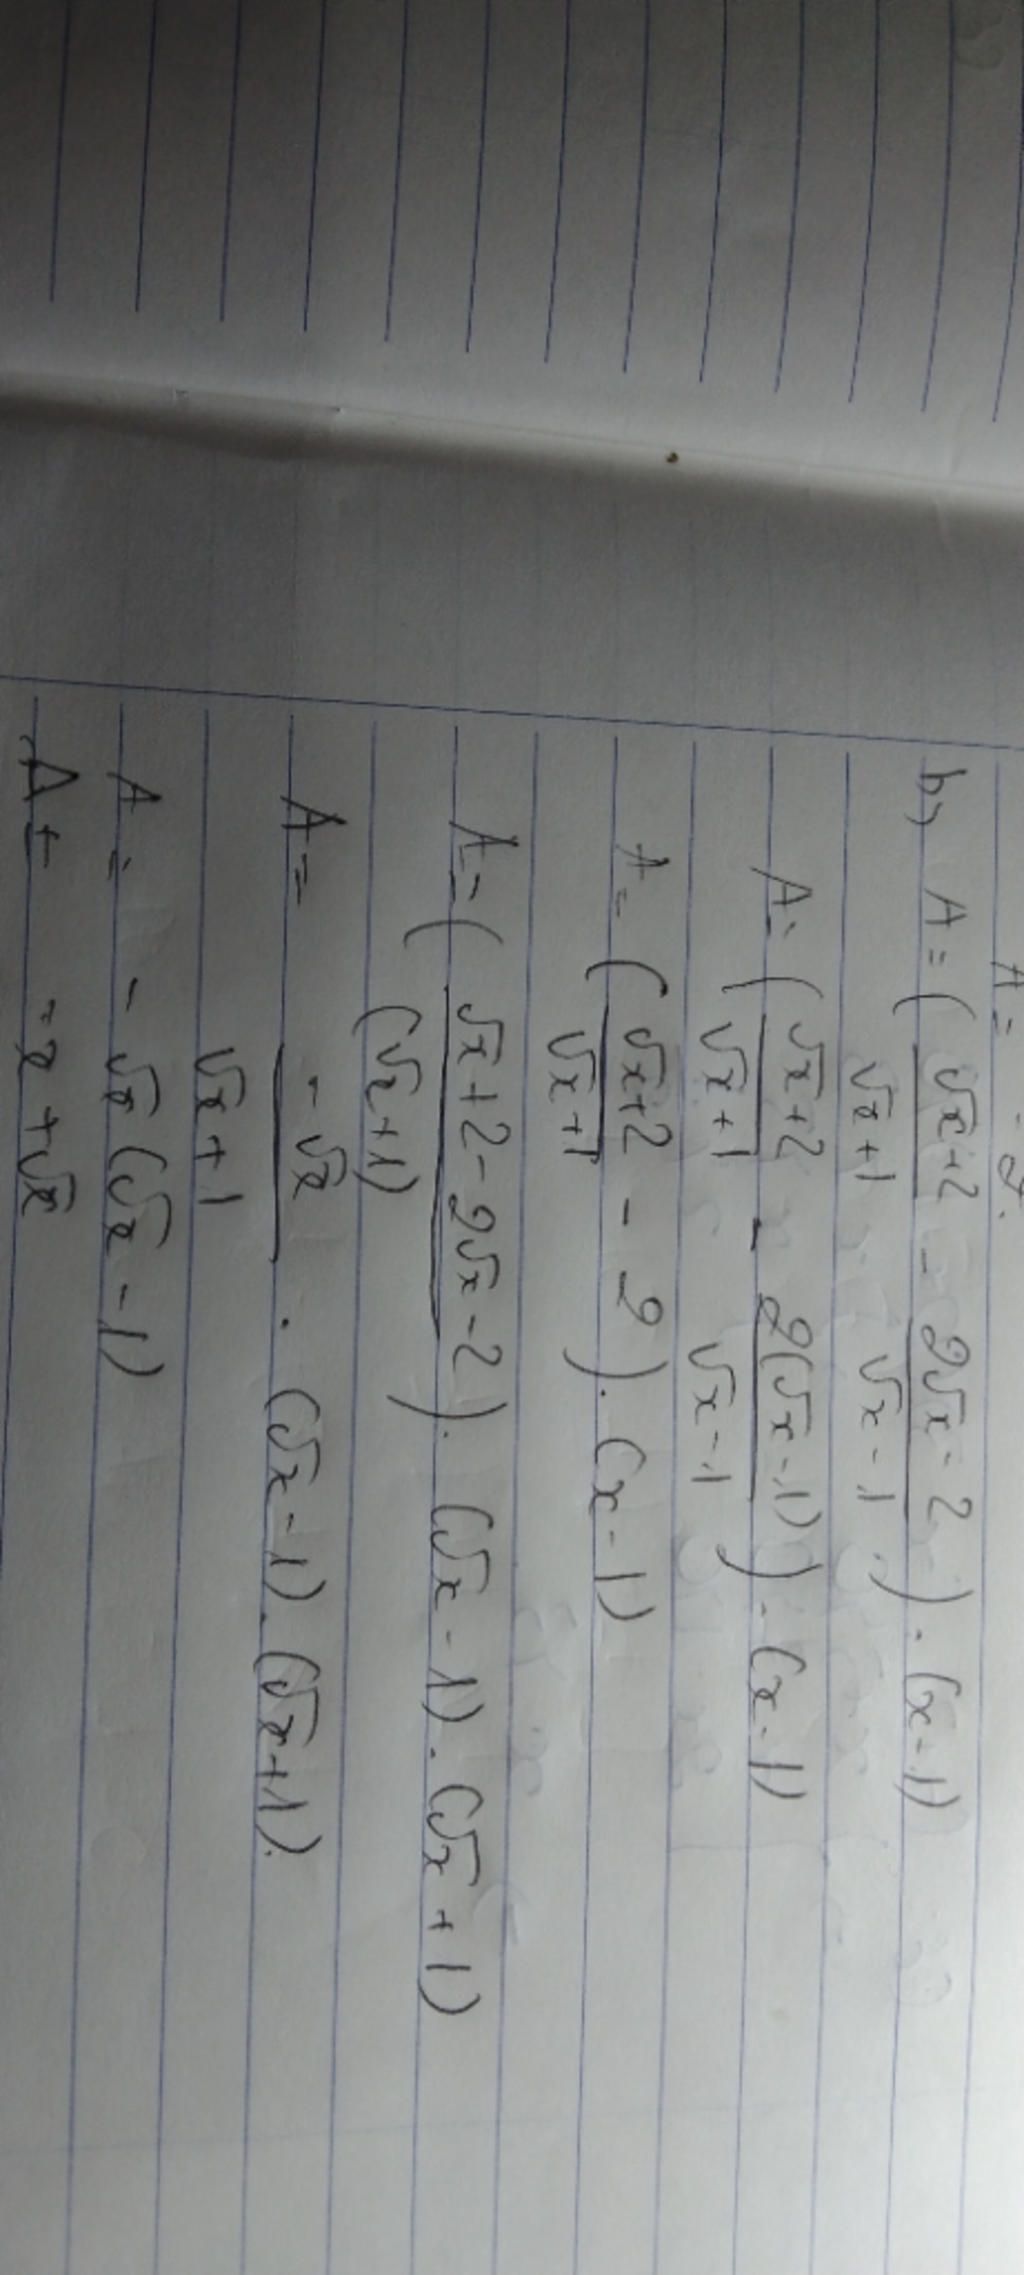 A = - 2.
b, A = ( (√x+2)/(√x+1) - (2√x-2)/(√x-1) ) . (x-1)
A = ( (√x+2)/(√x+1) - 2(√x-1)/(√x-1) ) . (x-1)
A = ( (√x+2)/(√x+1) - 2 ) . (x-1)
A = ( (√x+2-2√x-2)/(√x+1) ) . (√x-1) . (√x+1)
A = -√x/(√x+1) . (√x-1) . (√x+1).
A = -√x (√x-1)
A = -x+√x